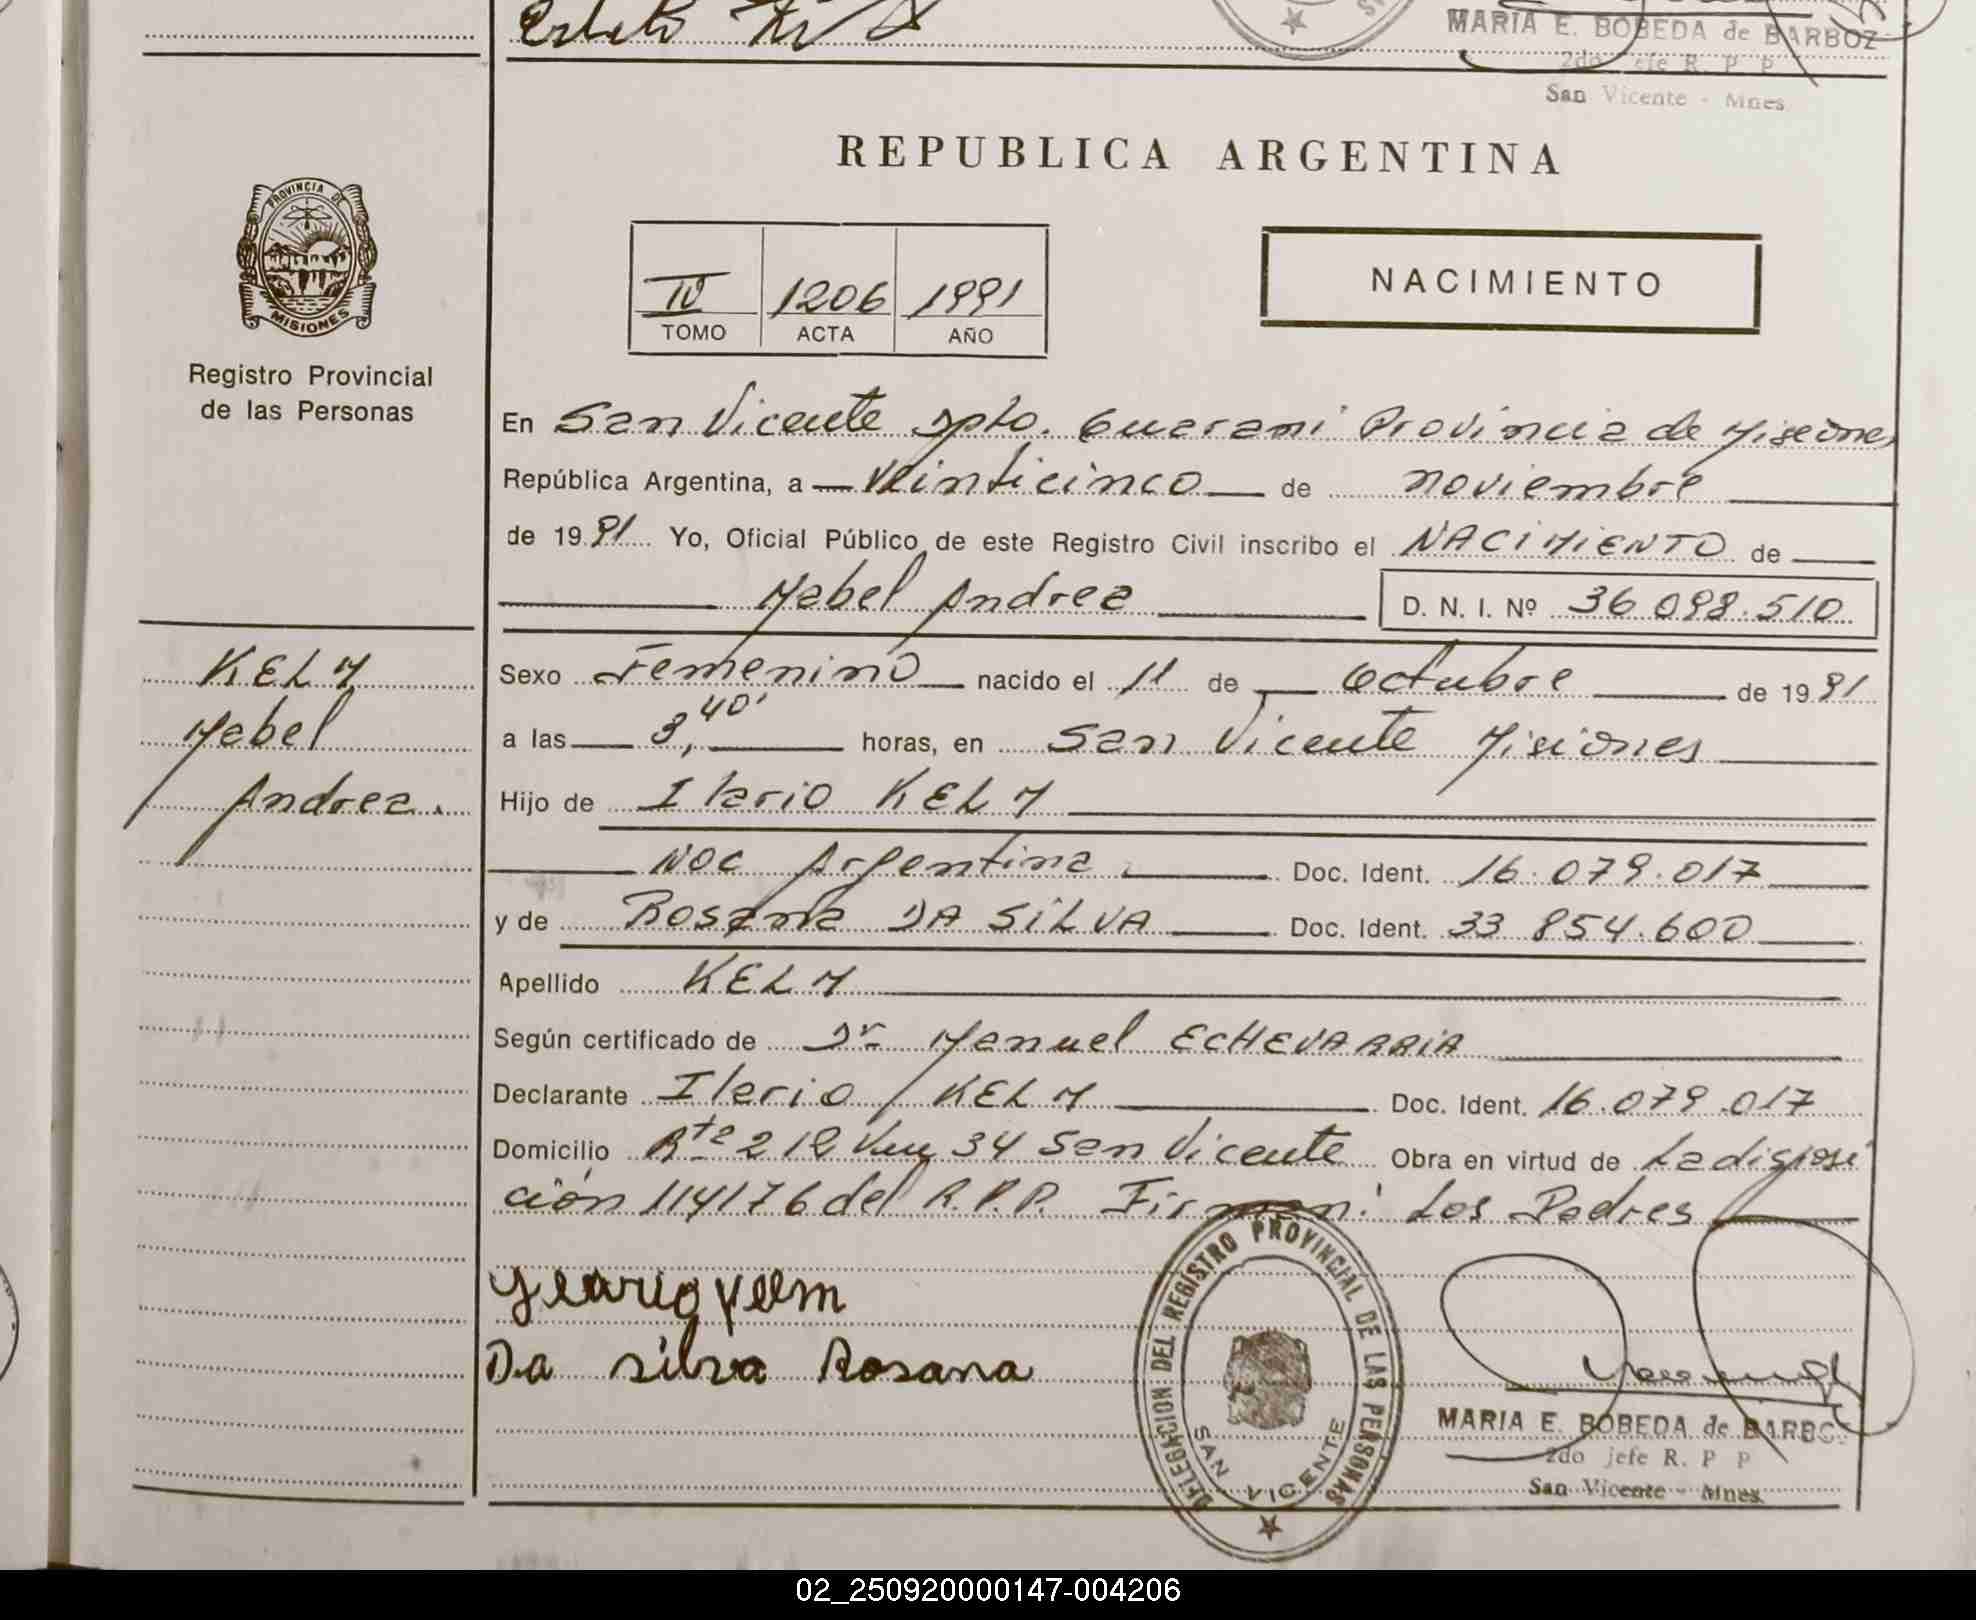 MARIA E. BOBEDA de BARBOZ
2do jefe R. P P
San Vicente - Mnes
REPUBLICA ARGENTINA
PROVINCIA DE
MISIONES
Registro Provincial
de las Personas
IV 1206 1991
TOMO ACTA AÑO
NACIMIENTO
En San Vicente Dpto. Guarani Provincia de Misiones
República Argentina, a veinticinco de noviembre
de 1991 Yo, Oficial Público de este Registro Civil inscribo el NACIMIENTO de
Mabel Andrea D. N. I. Nº 36.098.510
KELM
Mabel
Andrea.
Sexo Femenino nacido el 11 de octubre de 1991
a las 3,40' horas, en San Vicente Misiones
Hijo de Ilario KELM
Nac Argentina Doc. Ident. 16.079.017
y de Rosana DA SILVA Doc. Ident. 33 854.600
Apellido KELM
Según certificado de Dr Manuel ECHEVARRIA
Declarante Ilario KELM Doc. Ident. 16.079.017
Domicilio Rta 212 Km 34 San Vicente Obra en virtud de La disposi
ción 114176 del R.P.P. Firman: Los Padres
Da silva Rosana
DELEGACION DEL REGISTRO PROVINCIAL DE LAS PERSONAS
SAN VICENTE
MARIA E. BOBEDA de BARBO
2do jefe R. P P
San Vicente - Mnes.
02_250920000147-004206